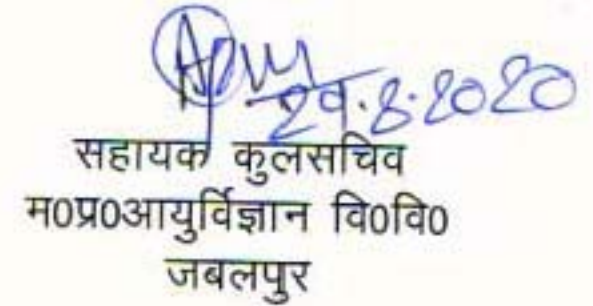 29.8.2020
सहायक कुलसचिव
म0प्र0आयुर्विज्ञान वि0वि0
जबलपुर